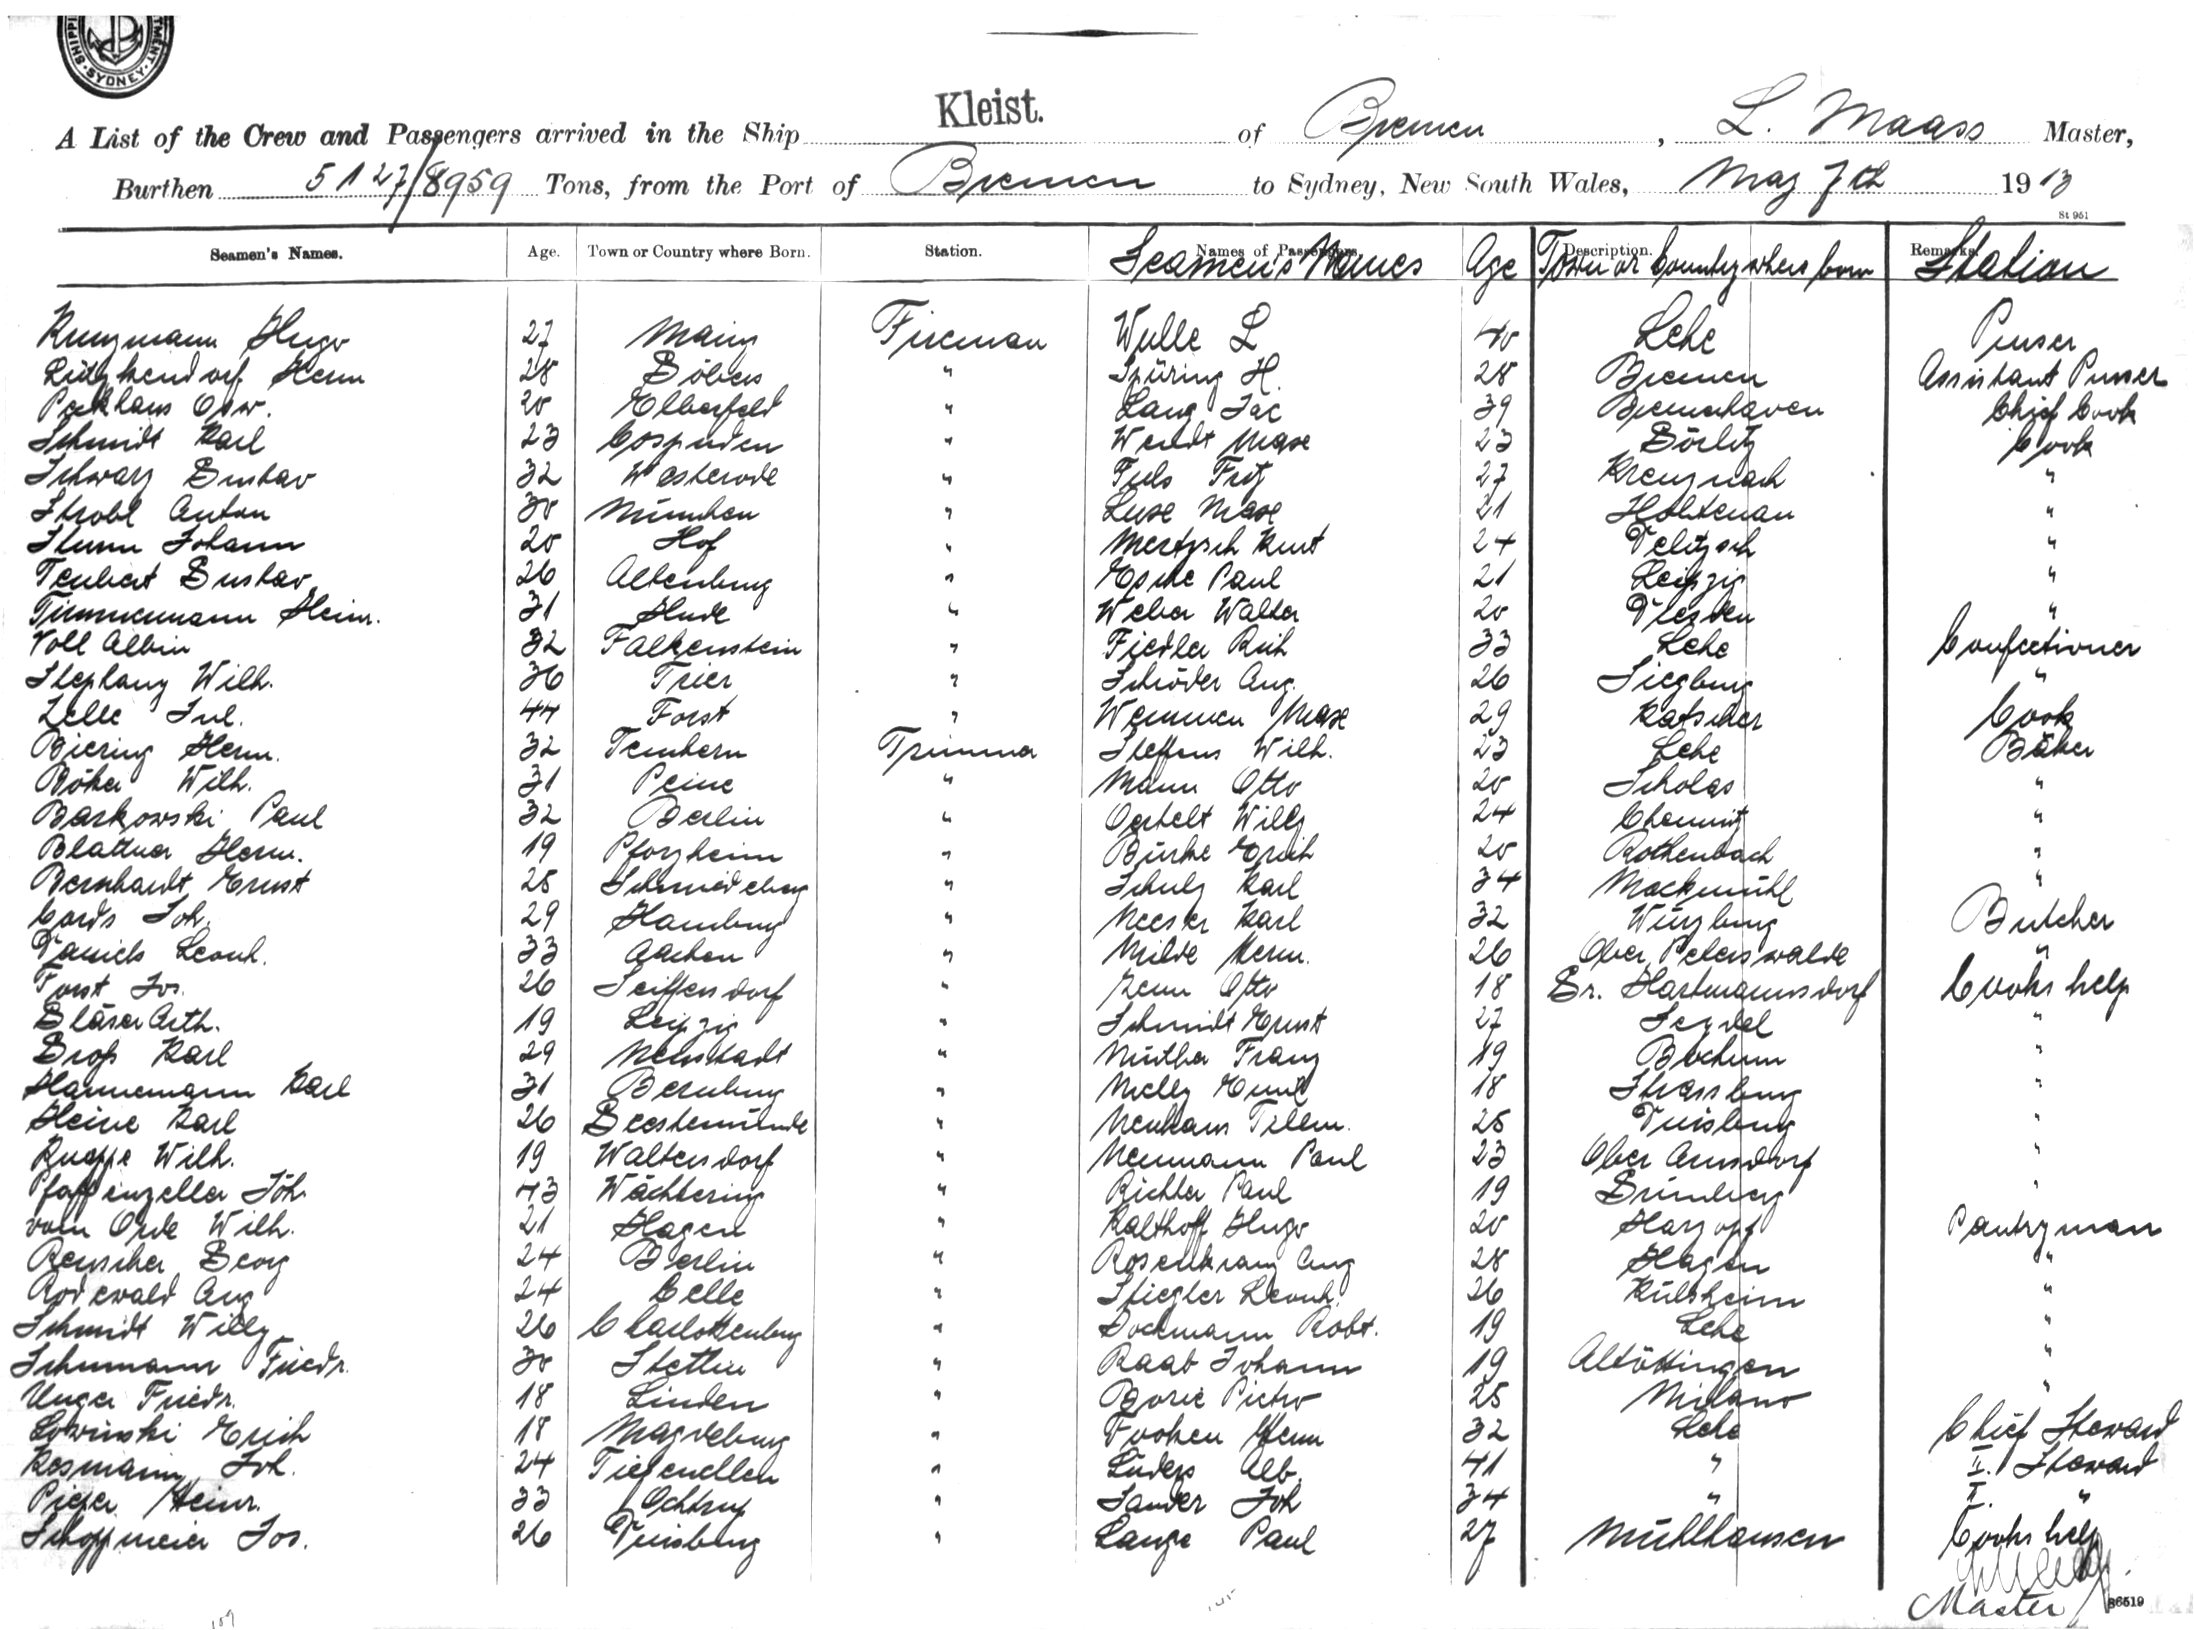 SHIPPING DEPARTMENT SYDNEY
A List of the Crew and Passengers arrived in the Ship Kleist. of Bremen, L. Maass Master,
Burthen 5127/8959 Tons, from the Port of Bremen to Sydney, New South Wales, May 7th 1913
St 951
Seamen's Names. Age. Town or Country where Born. Station. Names of Passengers Seamen's Names Age Description. Town or Country where born Remarks. Station
Kunzmann Hugo 27 Mainz Fireman Wulle L 40 Lehe Purser
Herm 28 " Spüring H. 28 Bremen Assistant Purser
Osw. 20 Elberfeld " Lang Jac 39 Bremerhaven Chief Cook
Schmidt Karl 23 Cospuden " Wendt Max 23 Görlitz Cook
Schwarz Gustav 32 Westerode " Fuls Fritz 27 Kreuznach "
Strobl Anton 30 München " Luse Max 21 Holtenau "
Sturm Johann 20 Hof " Mertzsch Kurt 24 Delitzsch "
Teubert Gustav 26 Altenburg " Paul 21 Leipzig "
Timmermann Heinr. 31 Hude " Weber Walter 20 Dresden "
Voll Albin 32 Falkenstein " Fiedler Rich 33 Lehe Confectioner
Stephany Wilh. 36 Trier " Schröder Aug. 26 Siegburg "
Zelle Jul. 44 Forst " Wemmen Max 29 Katscher Cook
Biering Herm. 32 Teuchern Trimmer Steffens Wilh. 23 Lehe Bäker
Böker Wilh. 31 Peine " Mann Otto 20 Scholas "
Barkowski Paul 32 Berlin " Oertelt Willy 24 Chemnitz "
Blattner Herm. 19 Pforzheim " Bürke Erich 20 Rothenbach "
Bernhardt Ernst 25 Schmiedeberg " Schulz Karl 34 Mockmühl "
Cords Joh. 29 Hamburg " Meeser Karl 32 Würzburg Butcher
Daniels Leonh. 33 Aachen " Milde Herm. 26 Ober Peterswalde "
Forst Jos. 26 Seiffersdorf " Zenn Otto 18 Gr. Hartmannsdorf Cooks help
Gläser Arth. 19 Leipzig " Schmidt Ernst 27 Seydel "
Groß Karl 29 Neustadt " Müther Franz 19 Bochum "
Hannemann Karl 31 Bernburg " Melly Emil 18 Strassburg "
Heine Karl 26 Geestemünde " Neuhaus Tillm. 25 Duisburg "
Knoppe Wilh. 19 Waltersdorf " Neumann Paul 23 Ober Arnsdorf "
Pfaffenzeller Joh. 43 Wächtering " Richter Paul 19 Grünberg "
vom Orde Wilh. 21 Hagen " Kalthoff Hugo 20 Harzopf Pantryman
Renscher Georg 24 Berlin " Rosenkranz Aug 28 Hagen "
Rodewald Aug 24 Celle " Stiegler Leonh. 26 Külsheim "
Schmidt Willy 26 Charlottenburg " Dockmann Robt. 19 Lehe "
Schumann Friedr. 30 Stettin " Raab Johann 19 Altöttingen "
Unger Friedr. 18 Linden " Borie Pietro 25 Milano "
Lowinski Erich 18 Magdeburg " Fooken Herm 32 Lehe Chief Steward
Kosmann Joh. 24 Tiefenellern " Lüders Alb. 41 " II. Steward
Pieper Heinr. 33 Ochtrup " Sander Joh 34 " II. "
Schoppmeier Jos. 26 Duisburg " Lange Paul 27 Mühlhausen Cooks help
Master
86519